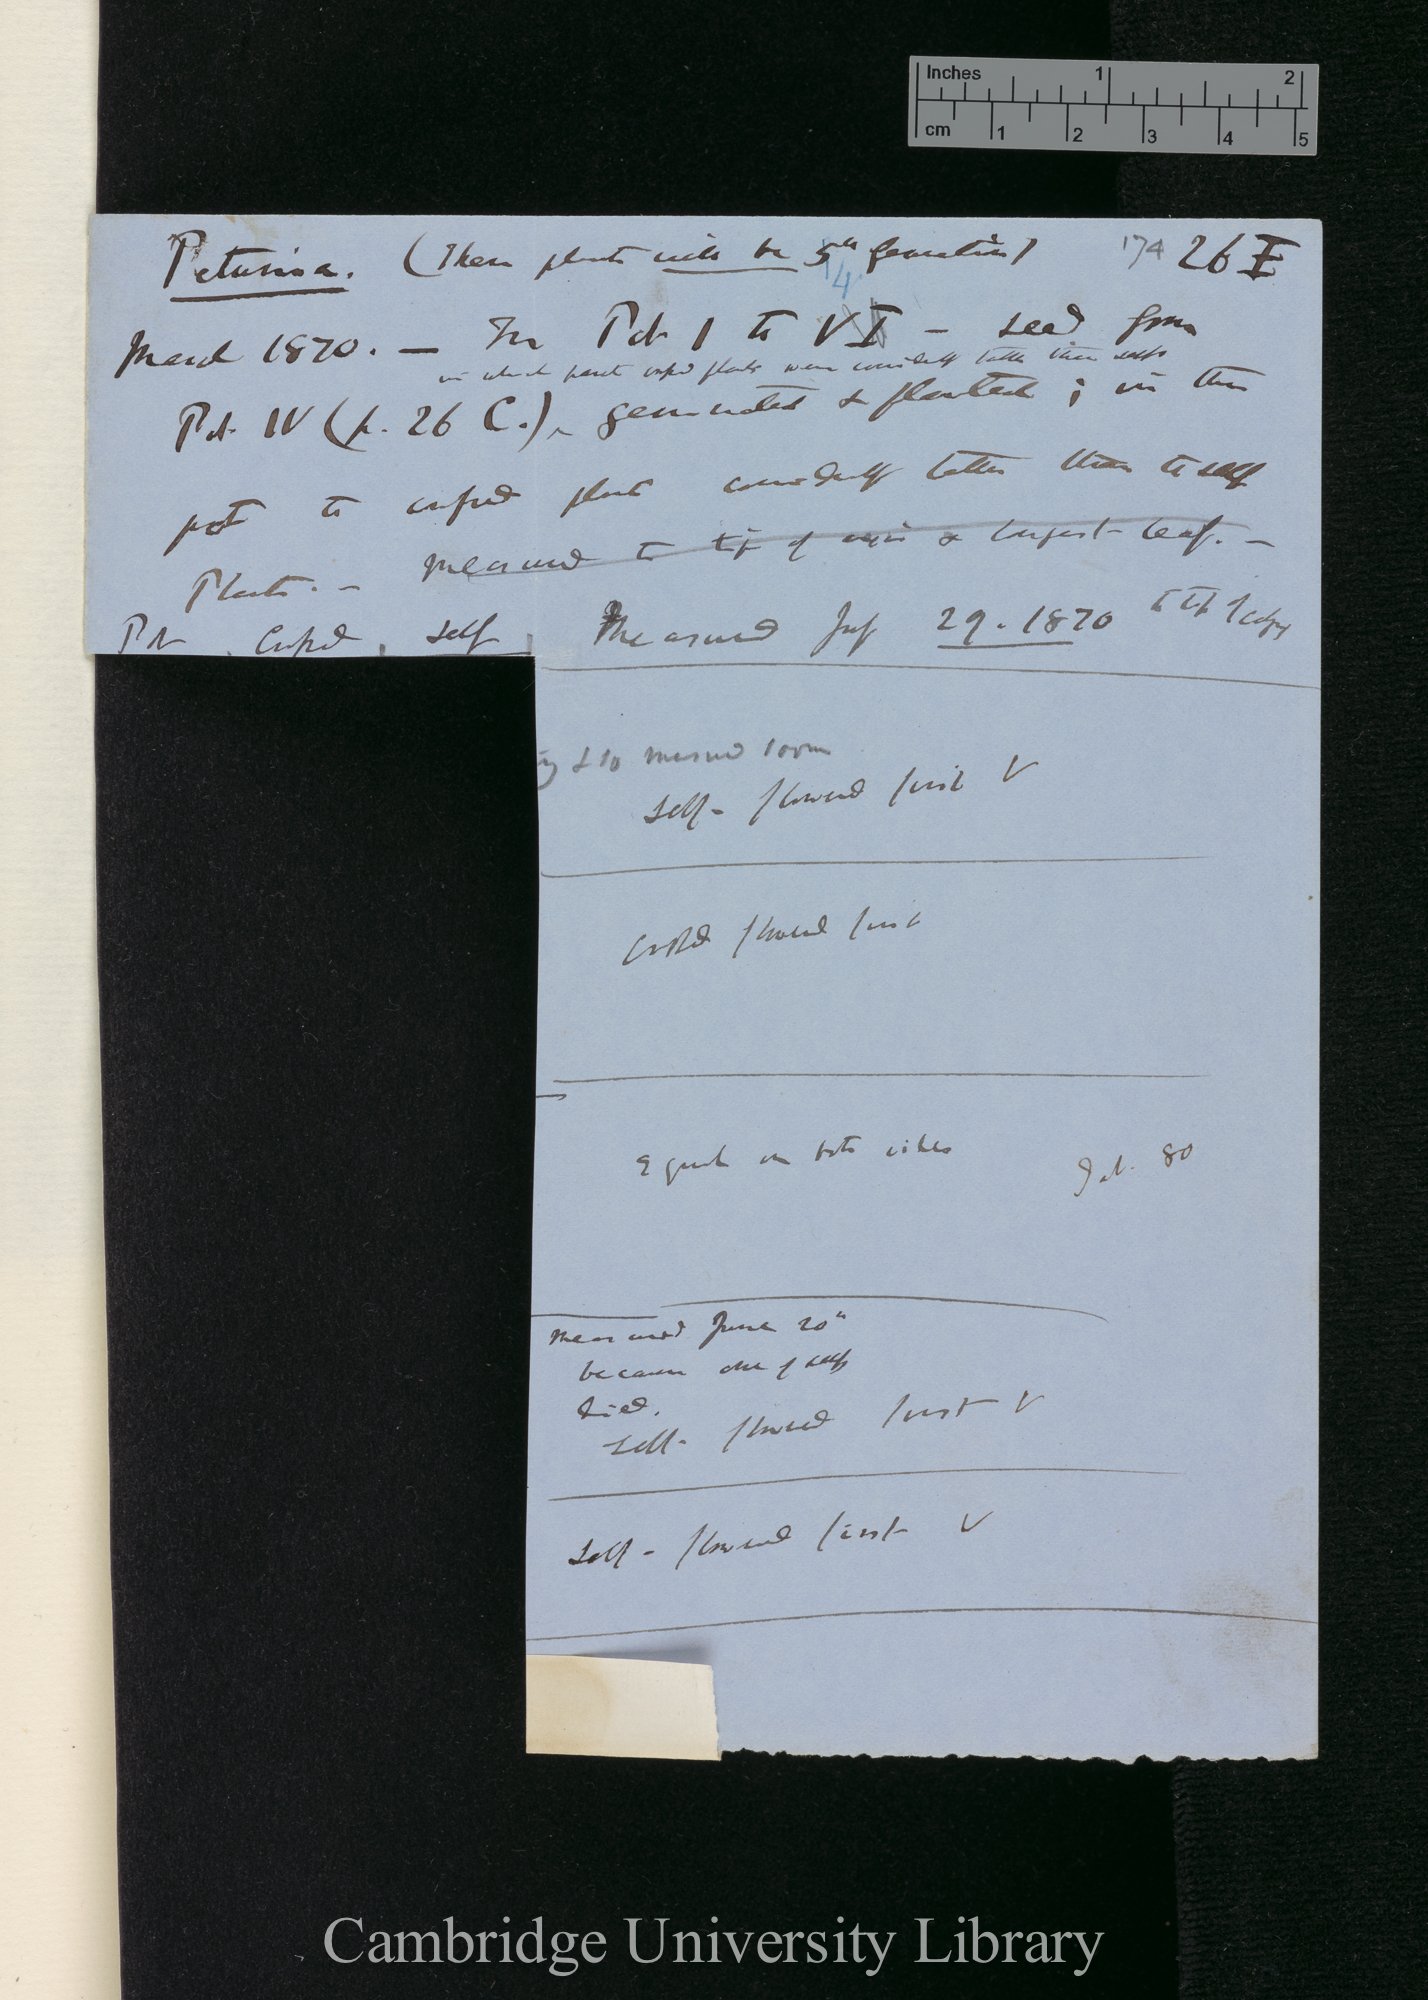 Inches 1 2
cm 1 2 3 4 5
Petunia. (These plants will be 5th generation) 174 26 E
4
March 1870. — In Pot I to V — seed from
in which parent crossed plants were considerably taller than selfs
Pot IV (p. 26 C.), germinated & planted ; in this
pot the crossed plants considerably taller than the self
Plants. — Measured to tip of & largest leaf. —
Pot Crossed Self Measured 29. 1870 to tip of
measured room
Self- flowered first V
Crossed flowered first
Equal on both sides 80
Measured June 20th
because one of selfs
died.
Self- flowered first V
Self - flowered first V
Cambridge University Library